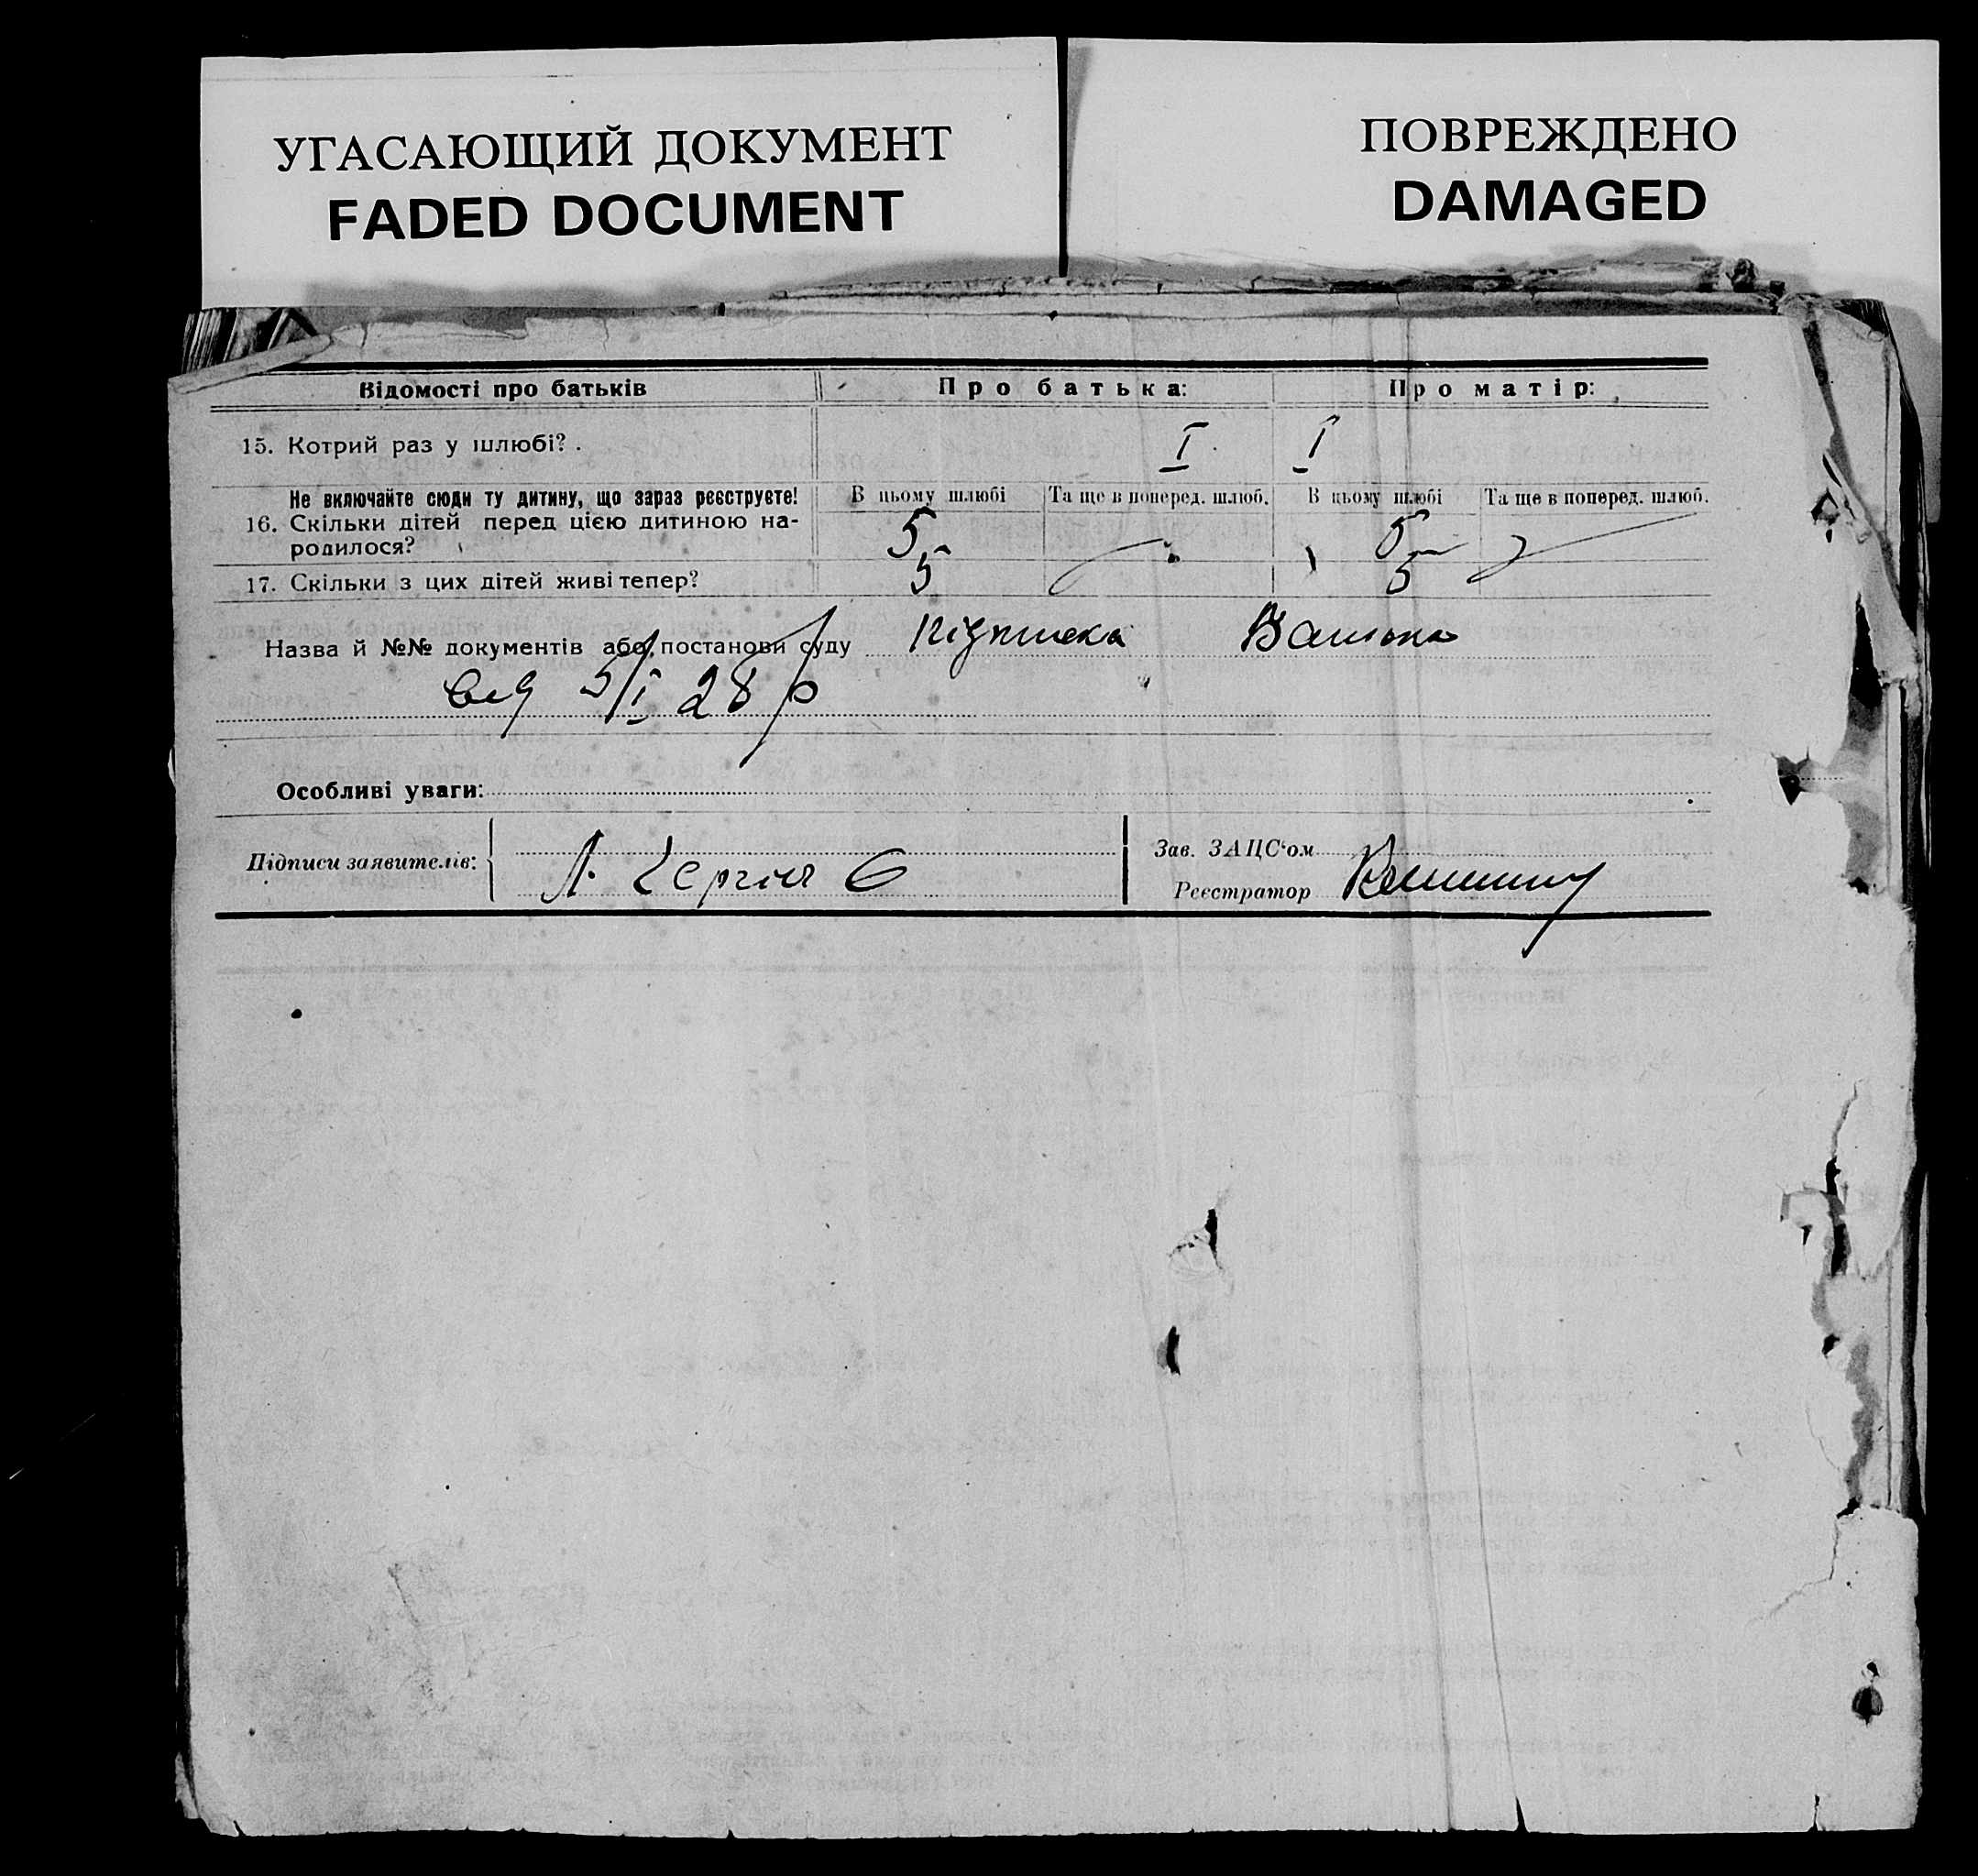 УГАСАЮЩИЙ ДОКУМЕНТ
FADED DOCUMENT
ПОВРЕЖДЕНО
DAMAGED
Відомості про батьків Про батька: Про матір:
15. Котрий раз у шлюбі? . I I
Не включайте сюди ту дитину, що зараз реєструєте! В цьому шлюбі Та ще в поперед. шлюб. В цьому шлюбі Та ще в поперед. шлюб.
16. Скільки дітей перед цією дитиною на-
родилося? 5 5
17. Скільки з цих дітей живі тепер? 5 5
Назва й №№ документів або постанови суду Підписка
від 5/I 28 р
Особливі уваги:
Підписи заявителів:
Зав. ЗАЦС'ом
Реєстратор